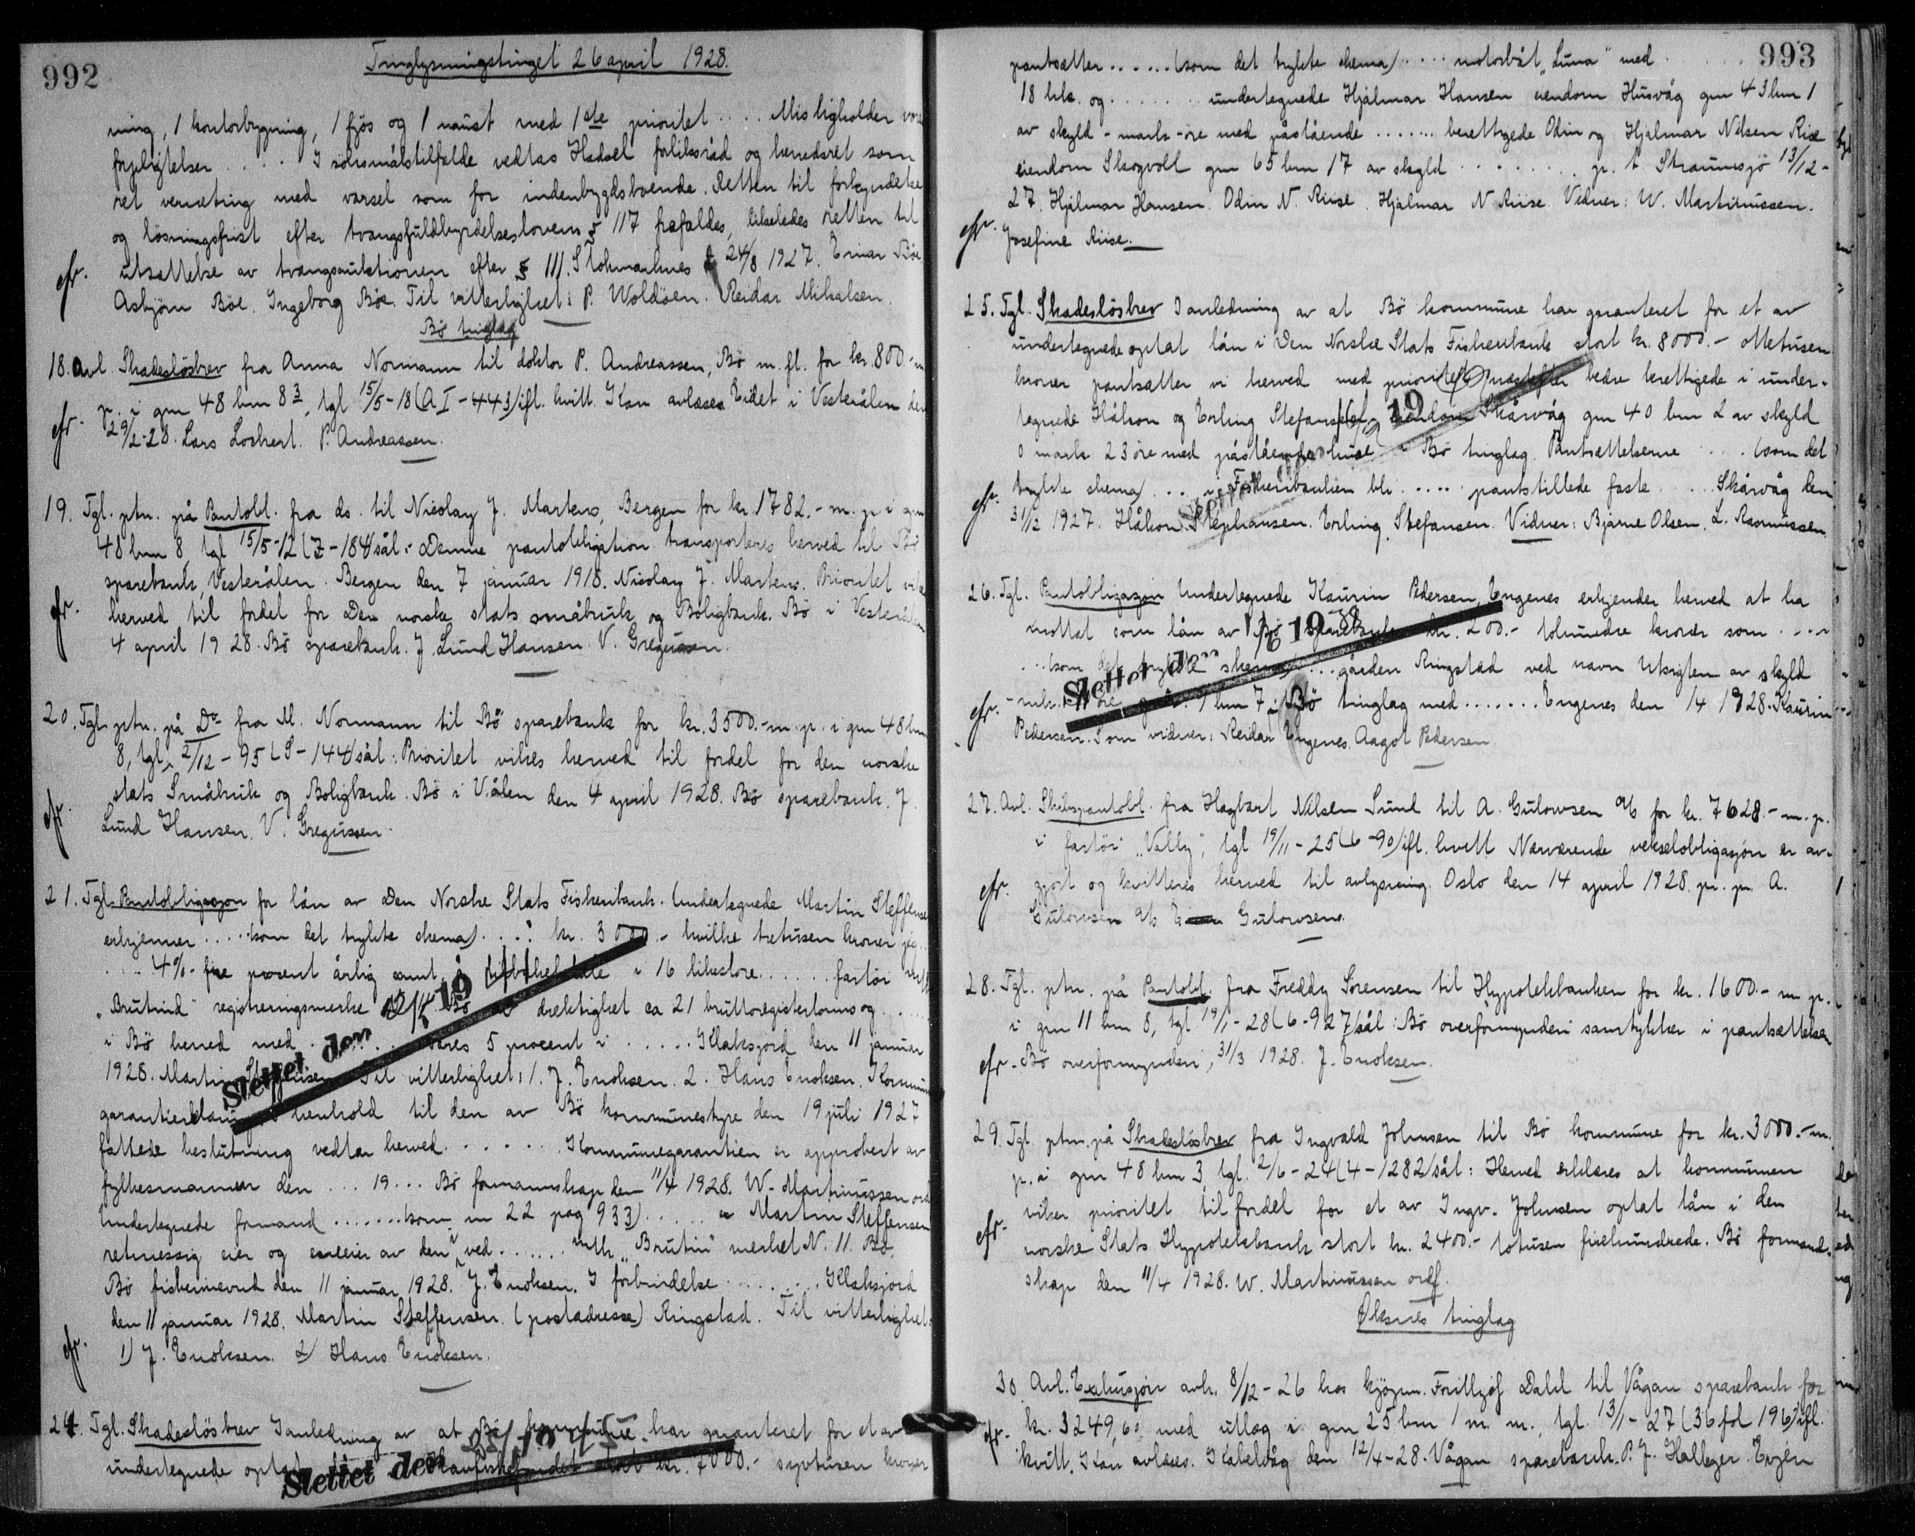 992
Tinglysningstinget 26 april 1928.
ning, 1 kontorbygning, 1 fjös og 1 naust med 1ste prioritet .... Misligholder
forpligtelser .... I söksmålstilfælde vedtas Hadsel forliksråd og herredsret som
ret verneting med varsel som for indenbygdsboende. Retten til forkyndelse
og lösningsfrist efter tvangsfuldbyrdelseslovens § 117 frafaldes, likeledes retten til
utsættelse av tvangsauktionen efter § 111. Stokmarknes 24/8 1927. Einar Böe
Asbjörn Böe. Ingeborg Böe. Til vitterlighet: P. Woldsen. Reidar Mikalsen.
Bö tinglag
18. Avl. Skadeslösbrev fra Anna Normann til doktor P. Andreassen, Bö m. fl. for kr. 800.- m
p. i gnr 48 bnr 83, tgl 15/5-18 (A I - 443) ifl. kvitt. Kan avlæses Eidet i Vesterålen den
29/2-28. Lars Lockert. P. Andreassen.
19. Tgl. ptn. på Pantobl. fra ds. til Nicolay J. Martens, Bergen for kr. 1782.- m. p. i gnr
48 bnr 8, tgl 15/5-12 (Z-184) sål.: Denne pantobligation transporteres herved til Bö
sparebank, Vesterålen. Bergen den 7 januar 1918. Nicolay J. Martens. Prioritet vikes
herved til fordel for Den norske stats småbruk og Boligbank. Bö i Vesterålen
4 april 1928. Bö sparebank. J. Lund Hansen. V. Gregussen.
20. Tgl. ptn. på Do fra M. Normann til Bö sparebank for kr. 3500.- m. p. i gnr 48 bnr
8, tgl. 2/12-95 (S-144) sål.: Prioritet vikes herved til fordel for den norske
stats Småbruk og Boligbank. Bö i V.ålen den 4 april 1928. Bö sparebank. J.
Lund Hansen. V. Gregussen.
21. Tgl. Pantobligasjon for lån av Den Norske Stats Fiskeribank. Undertegnede Martin Steffensen
erkjenner ..... (som det trykte skema) .... kr. 3000.- hvilke tretusen kroner jeg
.... 4% - fire procent årlig samt å tilbakebetale i 16 likestore ...... fartöi
"Brutind" registreringsmerke Bö drektighet ca 21 bruttoregistertonns og ....
i Bö herred med ...... 5 procent i ...... Klaksjord den 11 januar
1928. Martin Steffensen Til vitterlighet: 1. J. Enoksen. 2. Hans Enoksen. Kommune
garantierklæring i henhold til den av Bö kommunestyre den 19 juli 1927
fattede beslutning vedtar herved ...... Kommunegarantien er approbert av
fylkesmannen den ... 19 ... Bö formannskap den 11/4 1928. W. Martinussen ord
Undertegnede formand ....... (som nr 22 pag 933) ..... Martin Steffensen
retmessig eier og eneeier av den ved ....... mtk "Brutin" merket N. 11. Bö.
Bö fiskerinevnd den 11 januar 1928. J. Enoksen. I forbindelse ........ Klaksjord
den 11 januar 1928. Martin Steffensen. (postadresse) Ringstad. Til vitterlighet:
1) J. Enoksen. 2) Hans Enoksen.
Slettet den 19
24. Tgl. Skadeslösbrev I anledning av at Bö kommune har garanteret for et av
undertegnede optat stort kr. 7000.- syvtusen kroner
Slettet den
993
pantsætter ...... (som det trykte skema) .... motorbåt "Luna" med .....
18 hk. og ........ undertegnede Hjalmar Hansen eiendom Husvåg gnr 43 bnr 1
av skyld - mark - öre med påstående ....... berettigede Odin og Hjalmar Nilsen Riise
eiendom Skogvoll gnr 65 bnr 17 av skyld ......... p. t. Straumsjö 13/12-
27. Hjalmar Hansen. Odin N. Riise. Hjalmar N Riise. Vidner: W. Martinussen.
Josefine Riise.
25. Tgl. Skadeslösbrev I anledning av at Bö kommune har garanteret for et av
undertegnede optat lån i Den Norske Stats Fiskeribank stort kr. 8000.- ottetusen
kroner pantsætter vi herved med prioritet næstefter bedre berettigede i under-
tegnede Håkon og Erling Stefansens eiendom Skårvåg gnr 40 bnr 2 av skyld
0 mark 23 öre med påstående huse i Bö tinglag. Pantsettelserne .... (som det
trykte skema) .... Fiskeribanken blir .... pantstillede faste ..... Skårvåg den
31/12 1927. Håkon Stephansen. Erling Stefansen. Vidner: Bjarne Olsen. L. Rasmussen.
26. Tgl. Pantobligasjon Undertegnede Kaurin Pedersen, Engenes erkjender herved at ha
mottat som lån av Bö sparebank kr. 200.- tohundre kroner som ....
... (som det trykte skema) ... gården Ringstad ved navn Utsigten av skyld
- mk. öre gnr. 1 bnr 7 i Bö tinglag med ....... Engenes den 1/4 1928. Kaurin
Pedersen. Som vidner: Reidar Engenes. Aagot Pedersen
Slettet den 19
27. Avl. Skibspantobl. fra Hagbart Nilsen Sund til A. Gulowsen A/S for kr. 7628.- m. p.
i fartöi "Valby", tgl 19/11-25 (6-90) ifl. kvitt Nærværende vekselobligasjon er av-
gjort og kvitteres herved til avlysning. Oslo den 14 april 1928. pr. pr. A.
Gulowsen A/S Gulowsen.
28. Tgl. ptn. på Pantobl. fra Freddy Sörensen til Hypotekbanken for kr. 1600.- m. p.
i gnr 11 bnr 8, tgl 19/1-28 (6-927) sål: Bö overformynderi samtykker i pantsettelsen
Bö overformynderi, 31/3 1928. J. Enoksen.
29. Tgl. ptn. på Skadeslösbrev fra Ingvald Johnsen til Bö kommune for kr. 3000.- m.
p. i gnr 48 bnr 3, tgl. 2/6-24 (4-1282) sål: Herved erklæres at kommunen
viker prioritet til fordel for et av Ingv. Johnsen optat lån i den
norske Stats Hypotekbank stort kr. 2400.- totusen firehundrede. Bö formand-
skap den 11/4 1928. W. Martinussen ordf.
Öksnes tinglag
30 Avl. Exekusjon avh. 8/12-26 hos kjöpm. Fritthjof Dahl til Vågan sparebank for
kr. 3249,60 med utlæg i gnr 25 bnr 1 m. m., tgl. 13/1-27 (36 fol 196) ifl.
kvitt. Kan avlæses. Kabelvåg den 12/4-28. Vågan sparebank. P. J. Halleger. Evjen